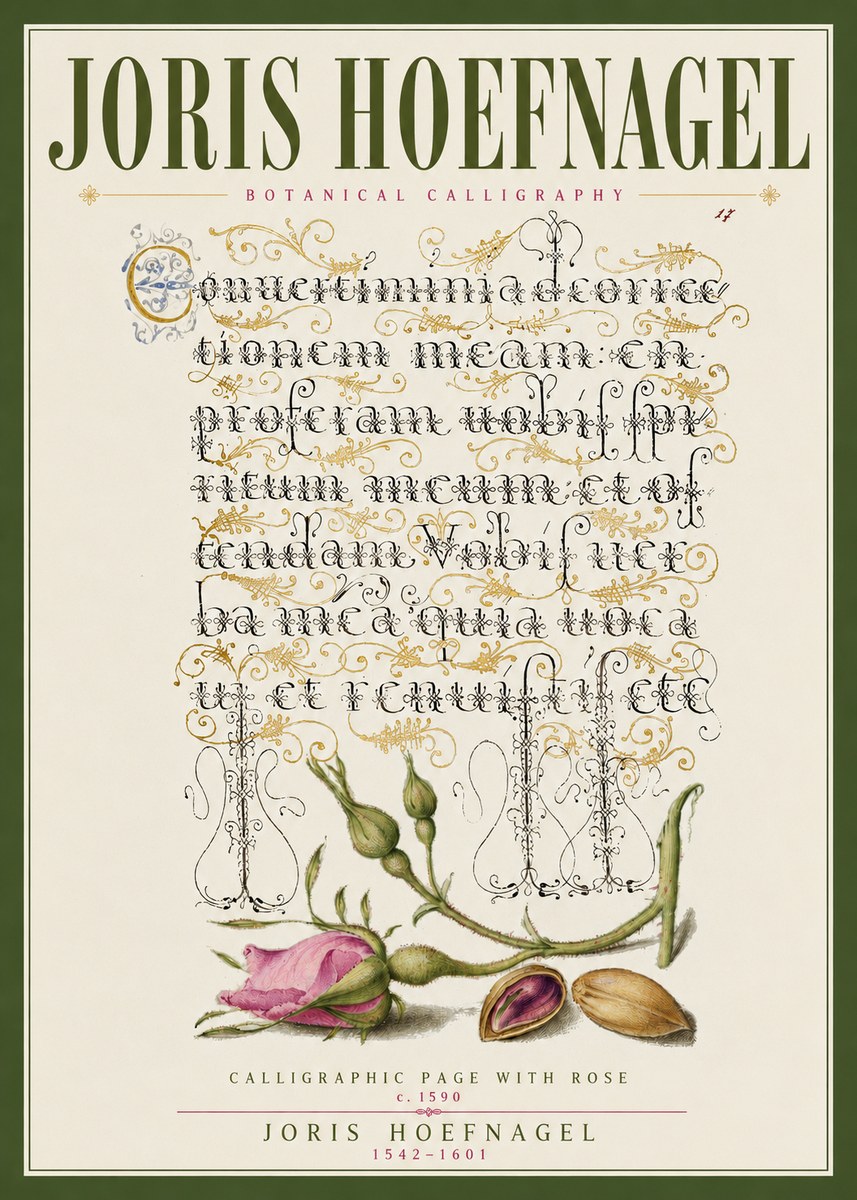 JORIS HOEFNAGEL
BOTANICAL CALLIGRAPHY
17
Conuertiminiadcorrec
tionem meam: en.
proferam uobiſ ſpi
ritum meum: et oſ
tendam Vobiſ uer
ba mea quia uoca
ui et renuiſtiſ etc
CALLIGRAPHIC PAGE WITH ROSE
c. 1590
JORIS HOEFNAGEL
1542–1601